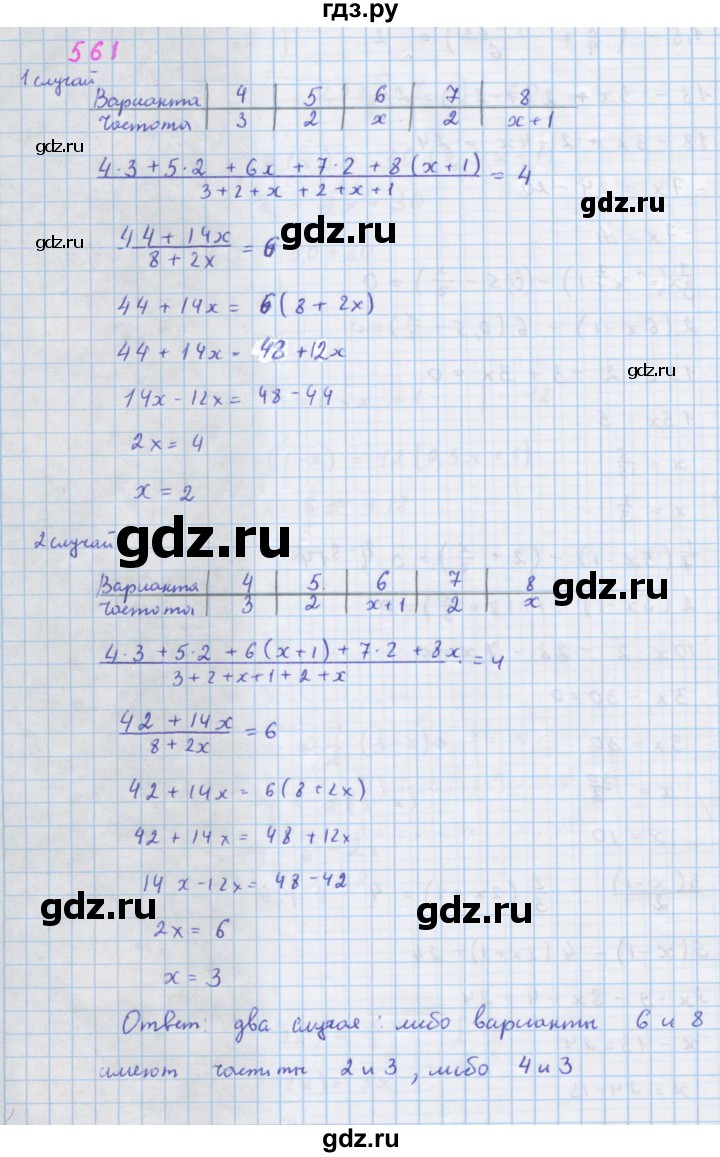 гдз.ру
561
1 случай
Варианта 4 5 6 7 8
Частота 3 2 x 2 x+1
gdz.ru
4·3 + 5·2 + 6x + 7·2 + 8(x+1) = 4
3+2+x+2+x+1
gdz.ru
44 + 14x = 6
8 + 2x
gdz.ru
gdz.ru
44 + 14x = 6(8 + 2x)
44 + 14x = 48 + 12x
gdz.ru
14x - 12x = 48 - 44
2x = 4
x = 2
gdz.ru
2 случай
Варианта 4 5 6 7 8
Частота 3 2 x+1 2 x
gdz.ru
4·3 + 5·2 + 6(x+1) + 7·2 + 8x = 4
3+2+x+1+2+x
42 + 14x = 6
8 + 2x
42 + 14x = 6(8 + 2x)
42 + 14x = 48 + 12x
14x - 12x = 48 - 42
gdz.ru
gdz.ru
2x = 6
x = 3
Ответ: два случая: либо варианты 6 и 8
имеют частиты 2 и 3, либо 4 и 3
gdz.ru